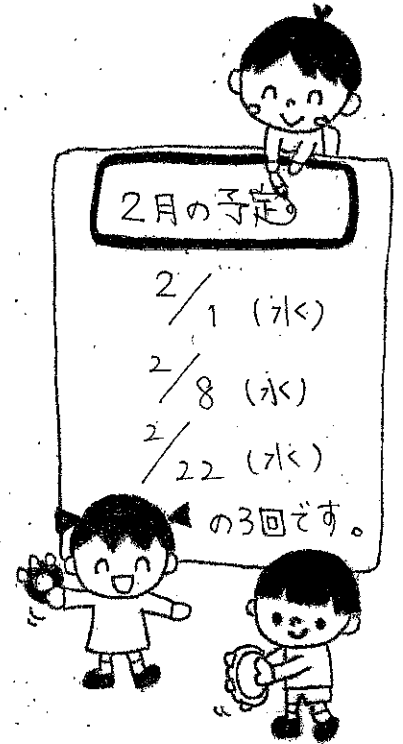 2月の予定。
2/1 (水)
2/8 (水)
2/22 (水)
の3回です。